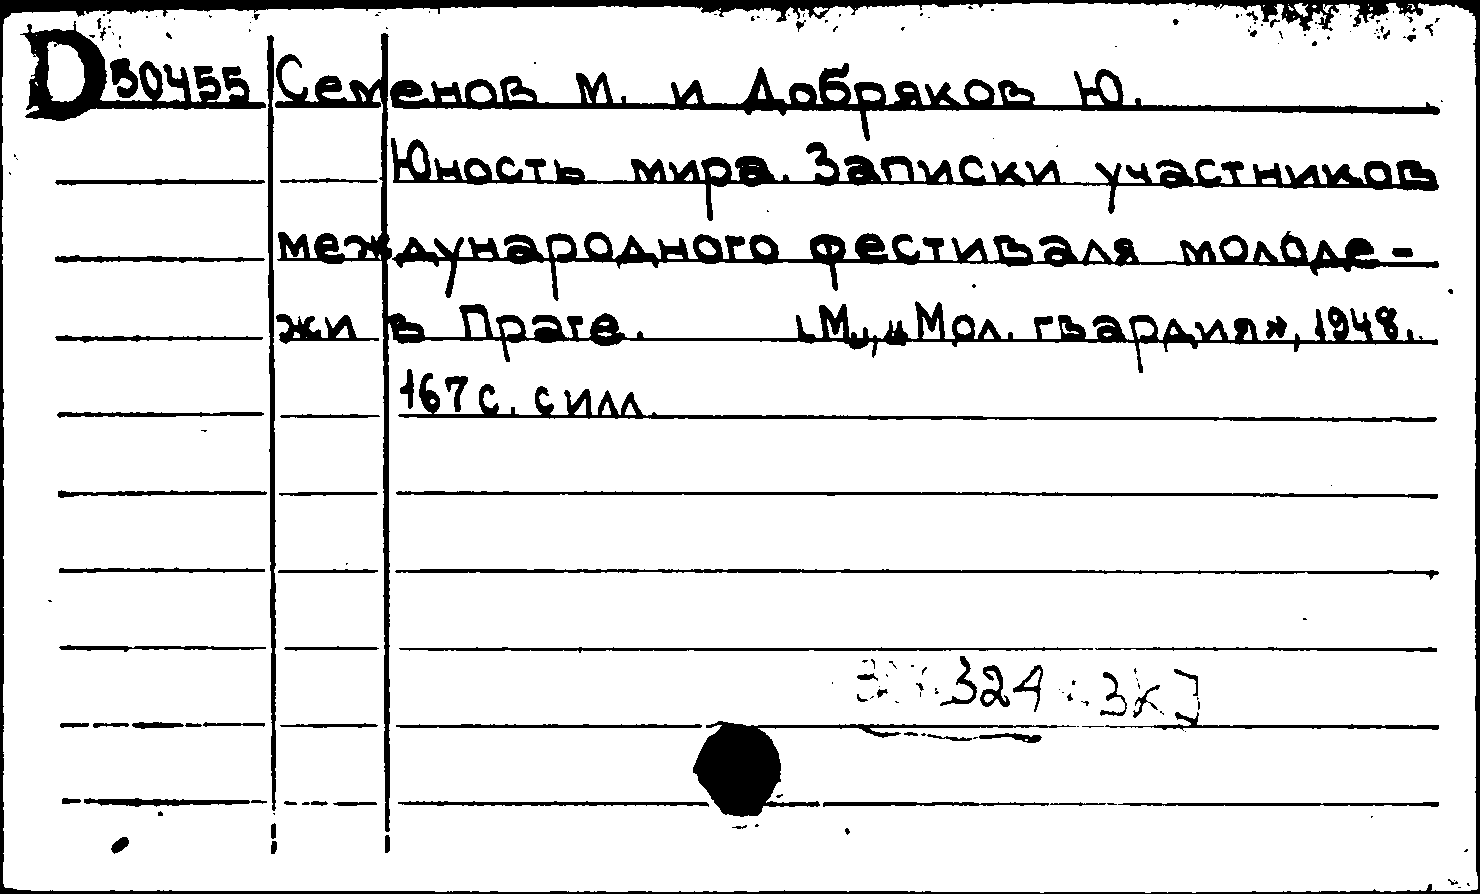 D 50455 Семенов М. и Добряков Ю.
Юность мира. Записки участников
международного фестиваля молоде-
жи в Праге. [М.], „Мол. гвардия", 1948.
167 с. с илл.
324 3К]